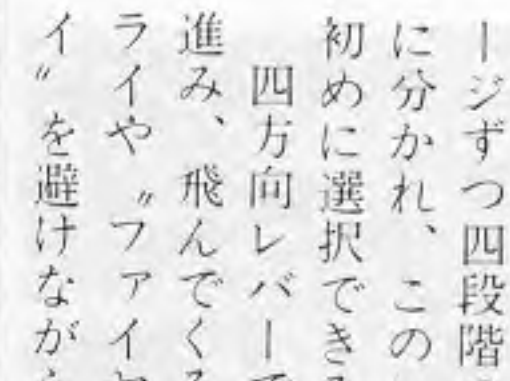 ージずつ四段階
に分かれ、この
初めに選択でき
四方向レバーで
進み、飛んでく
ライや〝ファイ
イ〟を避けなが